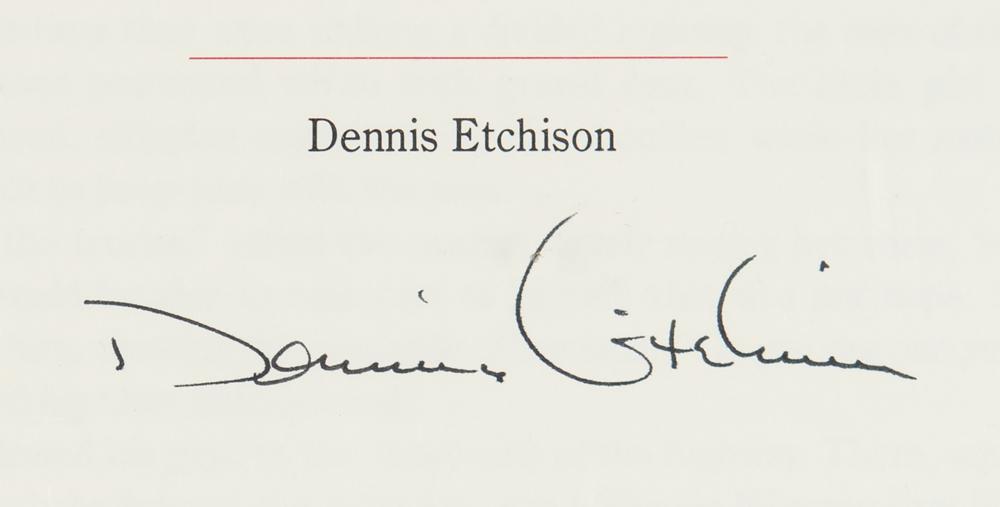 Dennis Etchison
Dennis Etchison